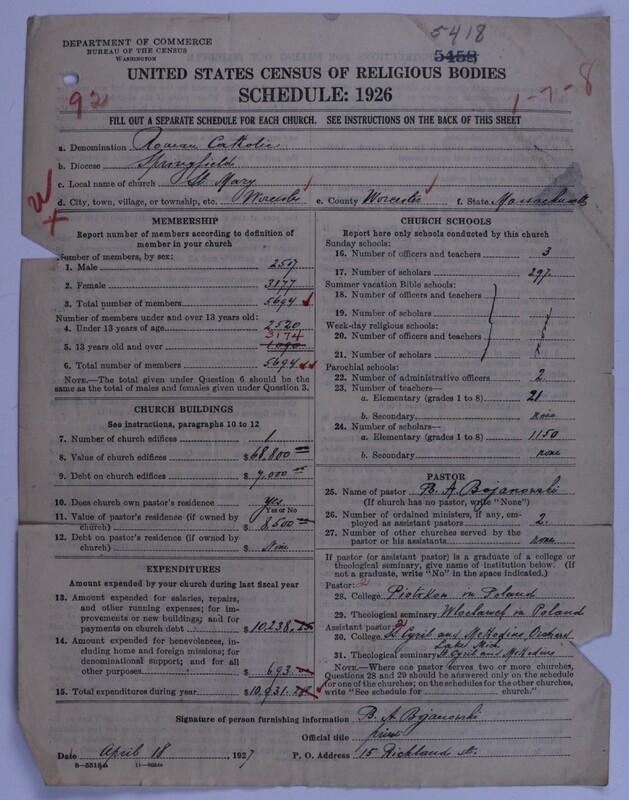 5418
DEPARTMENT OF COMMERCE
BUREAU OF THE CENSUS
WASHINGTON
5458
UNITED STATES CENSUS OF RELIGIOUS BODIES
SCHEDULE: 1926
92
1-7-8
FILL OUT A SEPARATE SCHEDULE FOR EACH CHURCH. SEE INSTRUCTIONS ON THE BACK OF THIS SHEET
a. Denomination Roman Catholic
b. Diocese Springfield
c. Local name of church St Mary
d. City, town, village, or township, etc. Worcester e. County Worcester f. State Massachusetts
MEMBERSHIP
Report number of members according to definition of
member in your church
Number of members, by sex:
1. Male 2517
2. Female 3177
3. Total number of members 5694
Number of members under and over 13 years old:
4. Under 13 years of age 2520
3174
5. 13 years old and over
6. Total number of members 5694
NOTE.—The total given under Question 6 should be the
same as the total of males and females given under Question 3.
CHURCH BUILDINGS
See instructions, paragraphs 10 to 12
7. Number of church edifices 1
8. Value of church edifices $68,800
9. Debt on church edifices $7,000
10. Does church own pastor's residence? yes
Yes or No
11. Value of pastor's residence (if owned by
church) $8500
12. Debt on pastor's residence (if owned by
church) $ None
EXPENDITURES
Amount expended by your church during last fiscal year
13. Amount expended for salaries, repairs,
and other running expenses; for im-
provements or new buildings; and for
payments on church debt $10,238.
14. Amount expended for benevolences, in-
cluding home and foreign missions; for
denominational support; and for all
other purposes $693
15. Total expenditures during year $10,931.
CHURCH SCHOOLS
Report here only schools conducted by this church
Sunday schools:
16. Number of officers and teachers 3
17. Number of scholars 297
Summer vacation Bible schools:
18. Number of officers and teachers
19. Number of scholars
Week-day religious schools:
20. Number of officers and teachers
21. Number of scholars
Parochial schools:
22. Number of administrative officers 2
23. Number of teachers—
a. Elementary (grades 1 to 8) 21
b. Secondary none
24. Number of scholars—
a. Elementary (grades 1 to 8) 1150
b. Secondary none
PASTOR
25. Name of pastor B. A. Bojanowski
(If church has no pastor, write "None")
26. Number of ordained ministers, if any, em-
ployed as assistant pastors 2
27. Number of other churches served by the
pastor or his assistants none
If pastor (or assistant pastor) is a graduate of a college or
theological seminary, give name of institution below. (If
not a graduate, write "No" in the space indicated.)
Pastor: 2
28. College in Poland
29. Theological seminary in Poland
Assistant pastor: 2
30. College St Cyril and Orchard
Lake Mich
31. Theological seminary St Cyril and
NOTE.—Where one pastor serves two or more churches,
Questions 28 and 29 should be answered only on the schedule
for one of the churches; on the schedules for the other churches,
write "See schedule for church."
Signature of person furnishing information B. A. Bojanowski
Official title priest
Date April 18, 1927 P. O. Address 15 Richland St.